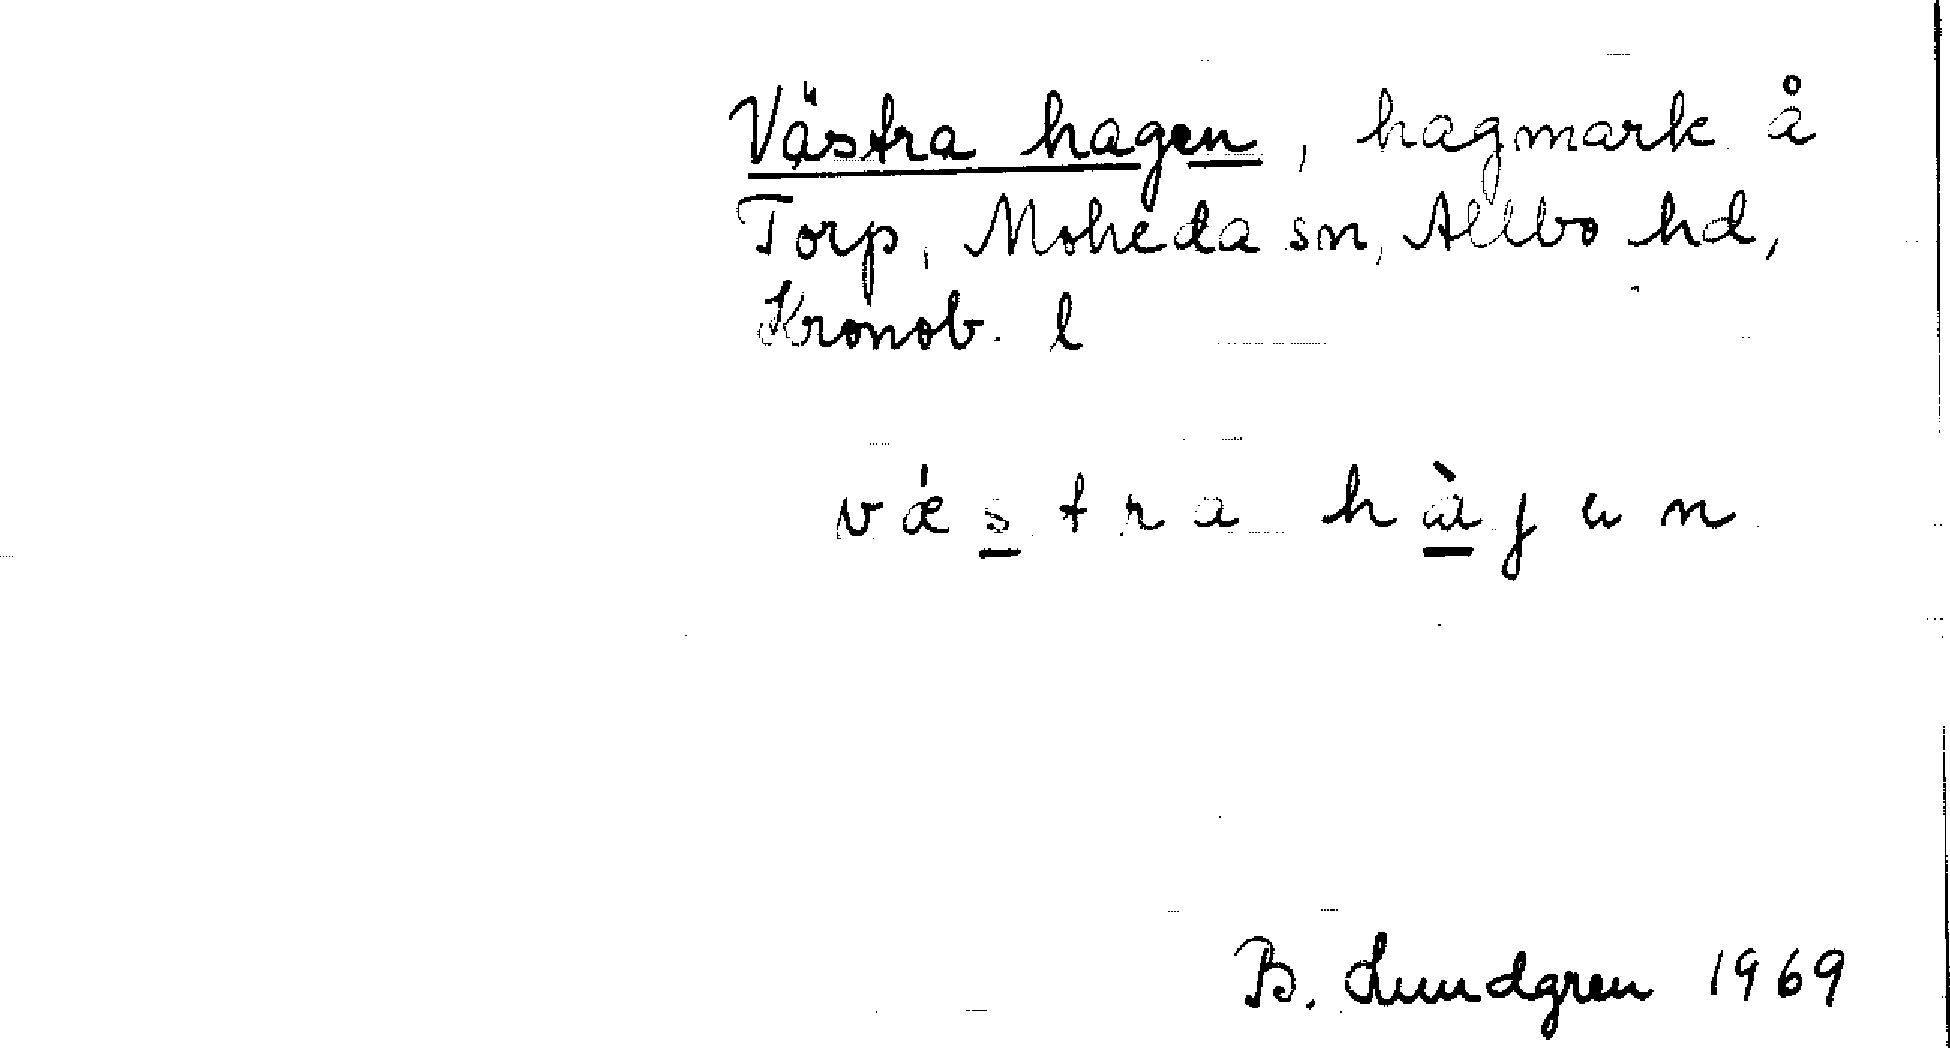 Västra hagen, hagmark å
Torp, Moheda sn, Allbo hd,
Kronob. l
vǽstra hàjen
B. Lundgren 1969